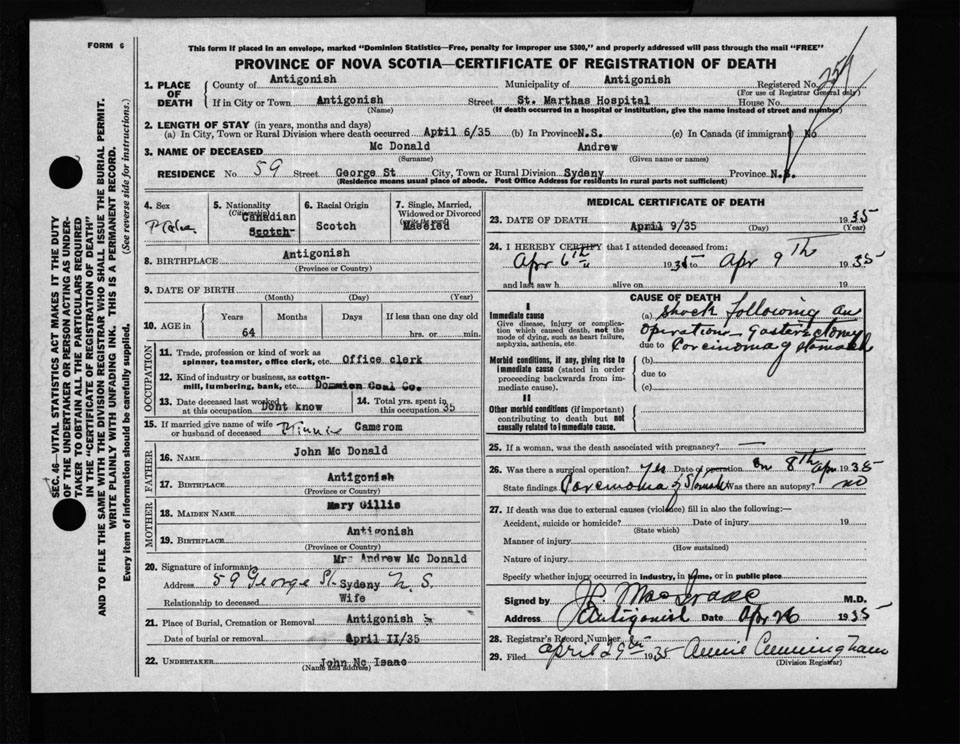 FORM 6
This form if placed in an envelope, marked "Dominion Statistics—Free, penalty for improper use $300," and properly addressed will pass through the mail "FREE"
PROVINCE OF NOVA SCOTIA—CERTIFICATE OF REGISTRATION OF DEATH
SEC. 46—VITAL STATISTICS ACT MAKES IT THE DUTY
OF THE UNDERTAKER OR PERSON ACTING AS UNDER-
TAKER TO OBTAIN ALL THE PARTICULARS REQUIRED
IN THE "CERTIFICATE OF REGISTRATION OF DEATH"
AND TO FILE THE SAME WITH THE DIVISION REGISTRAR WHO SHALL ISSUE THE BURIAL PERMIT.
WRITE PLAINLY WITH UNFADING INK. THIS IS A PERMANENT RECORD.
Every item of information should be carefully supplied. (See reverse side for instructions.)
1. PLACE OF DEATH County of Antigonish Municipality of Antigonish Registered No. 259
(For use of Registrar General only)
If in City or Town Antigonish Street St. Marthas Hospital House No.
(Name) (If death occurred in a hospital or institution, give the name instead of street and number)
2. LENGTH OF STAY (in years, months and days)
(a) In City, Town or Rural Division where death occurred April 6/35 (b) In Province N.S. (c) In Canada (if immigrant) No
3. NAME OF DECEASED Mc Donald Andrew
(Surname) (Given name or names)
RESIDENCE No 59 Street George St City, Town or Rural Division Sydeny Province N.S.
(Residence means usual place of abode. Post Office Address for residents in rural parts not sufficient)
4. Sex Male
5. Nationality (Citizenship) Canadian Scotch
6. Racial Origin Scotch
7. Single, Married, Widowed or Divorced (write the word) Married
8. BIRTHPLACE Antigonish
(Province or Country)
9. DATE OF BIRTH
(Month) (Day) (Year)
10. AGE in Years Months Days If less than one day old
64 hrs. or min.
OCCUPATION
11. Trade, profession or kind of work as spinner, teamster, office clerk, etc. Office clerk
12. Kind of industry or business, as cotton-mill, lumbering, bank, etc. Dommion Coal Co.
13. Date deceased last worked at this occupation Dont know
14. Total yrs. spent in this occupation 35
15. If married give name of wife or husband of deceased Minnie Camerom
FATHER
16. NAME John Mc Donald
17. BIRTHPLACE Antigonish
(Province or Country)
MOTHER
18. MAIDEN NAME Mary Gillis
19. BIRTHPLACE Antigonish
(Province or Country)
20. Signature of informant Mrs Andrew Mc Donald
Address 59 George St. Sydeny N.S.
Relationship to deceased Wife
21. Place of Burial, Cremation or Removal Antigonish
Date of burial or removal April II/35
22. UNDERTAKER John Mc Isaac
(Name and address)
MEDICAL CERTIFICATE OF DEATH
23. DATE OF DEATH April 9/35 1935
(Day) (Year)
24. I HEREBY CERTIFY that I attended deceased from:
Apr 6th 1935 to Apr 9th 1935
and last saw h alive on 19
CAUSE OF DEATH
I
Immediate cause
Give disease, injury or complication which caused death, not the mode of dying, such as heart failure, asphyxia, asthenia, etc.
(a) Shock following an
Operation Gasterectomy
due to Carcinoma of stomach
Morbid conditions, if any, giving rise to immediate cause (stated in order proceeding backwards from immediate cause).
(b)
due to
(c)
II
Other morbid conditions (if important) contributing to death but not causally related to immediate cause.
25. If a woman, was the death associated with pregnancy? —
26. Was there a surgical operation? Yes Date of operation on 8th Apr 1935
State findings Carcinoma of Stomach Was there an autopsy? no
27. If death was due to external causes (violence) fill in also the following:—
Accident, suicide or homicide? Date of injury 19
(State which)
Manner of injury
(How sustained)
Nature of injury
Specify whether injury occurred in industry, in home, or in public place
Signed by J. MacIsaac M.D.
Address Antigonish Date Apr 26 1935
28. Registrar's Record Number
29. Filed April 29th 1935 Annie Cunningham
(Division Registrar)